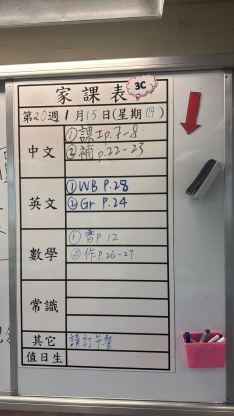 家課表 3C
第20週 1月15日(星期四)
中文 ①課Ip.7-8
②補p.22-23
英文 ①WB P.28
②Gr P.24
數學 ①書P.12
②作P.26-27
常識
其它 請訂午餐
值日生